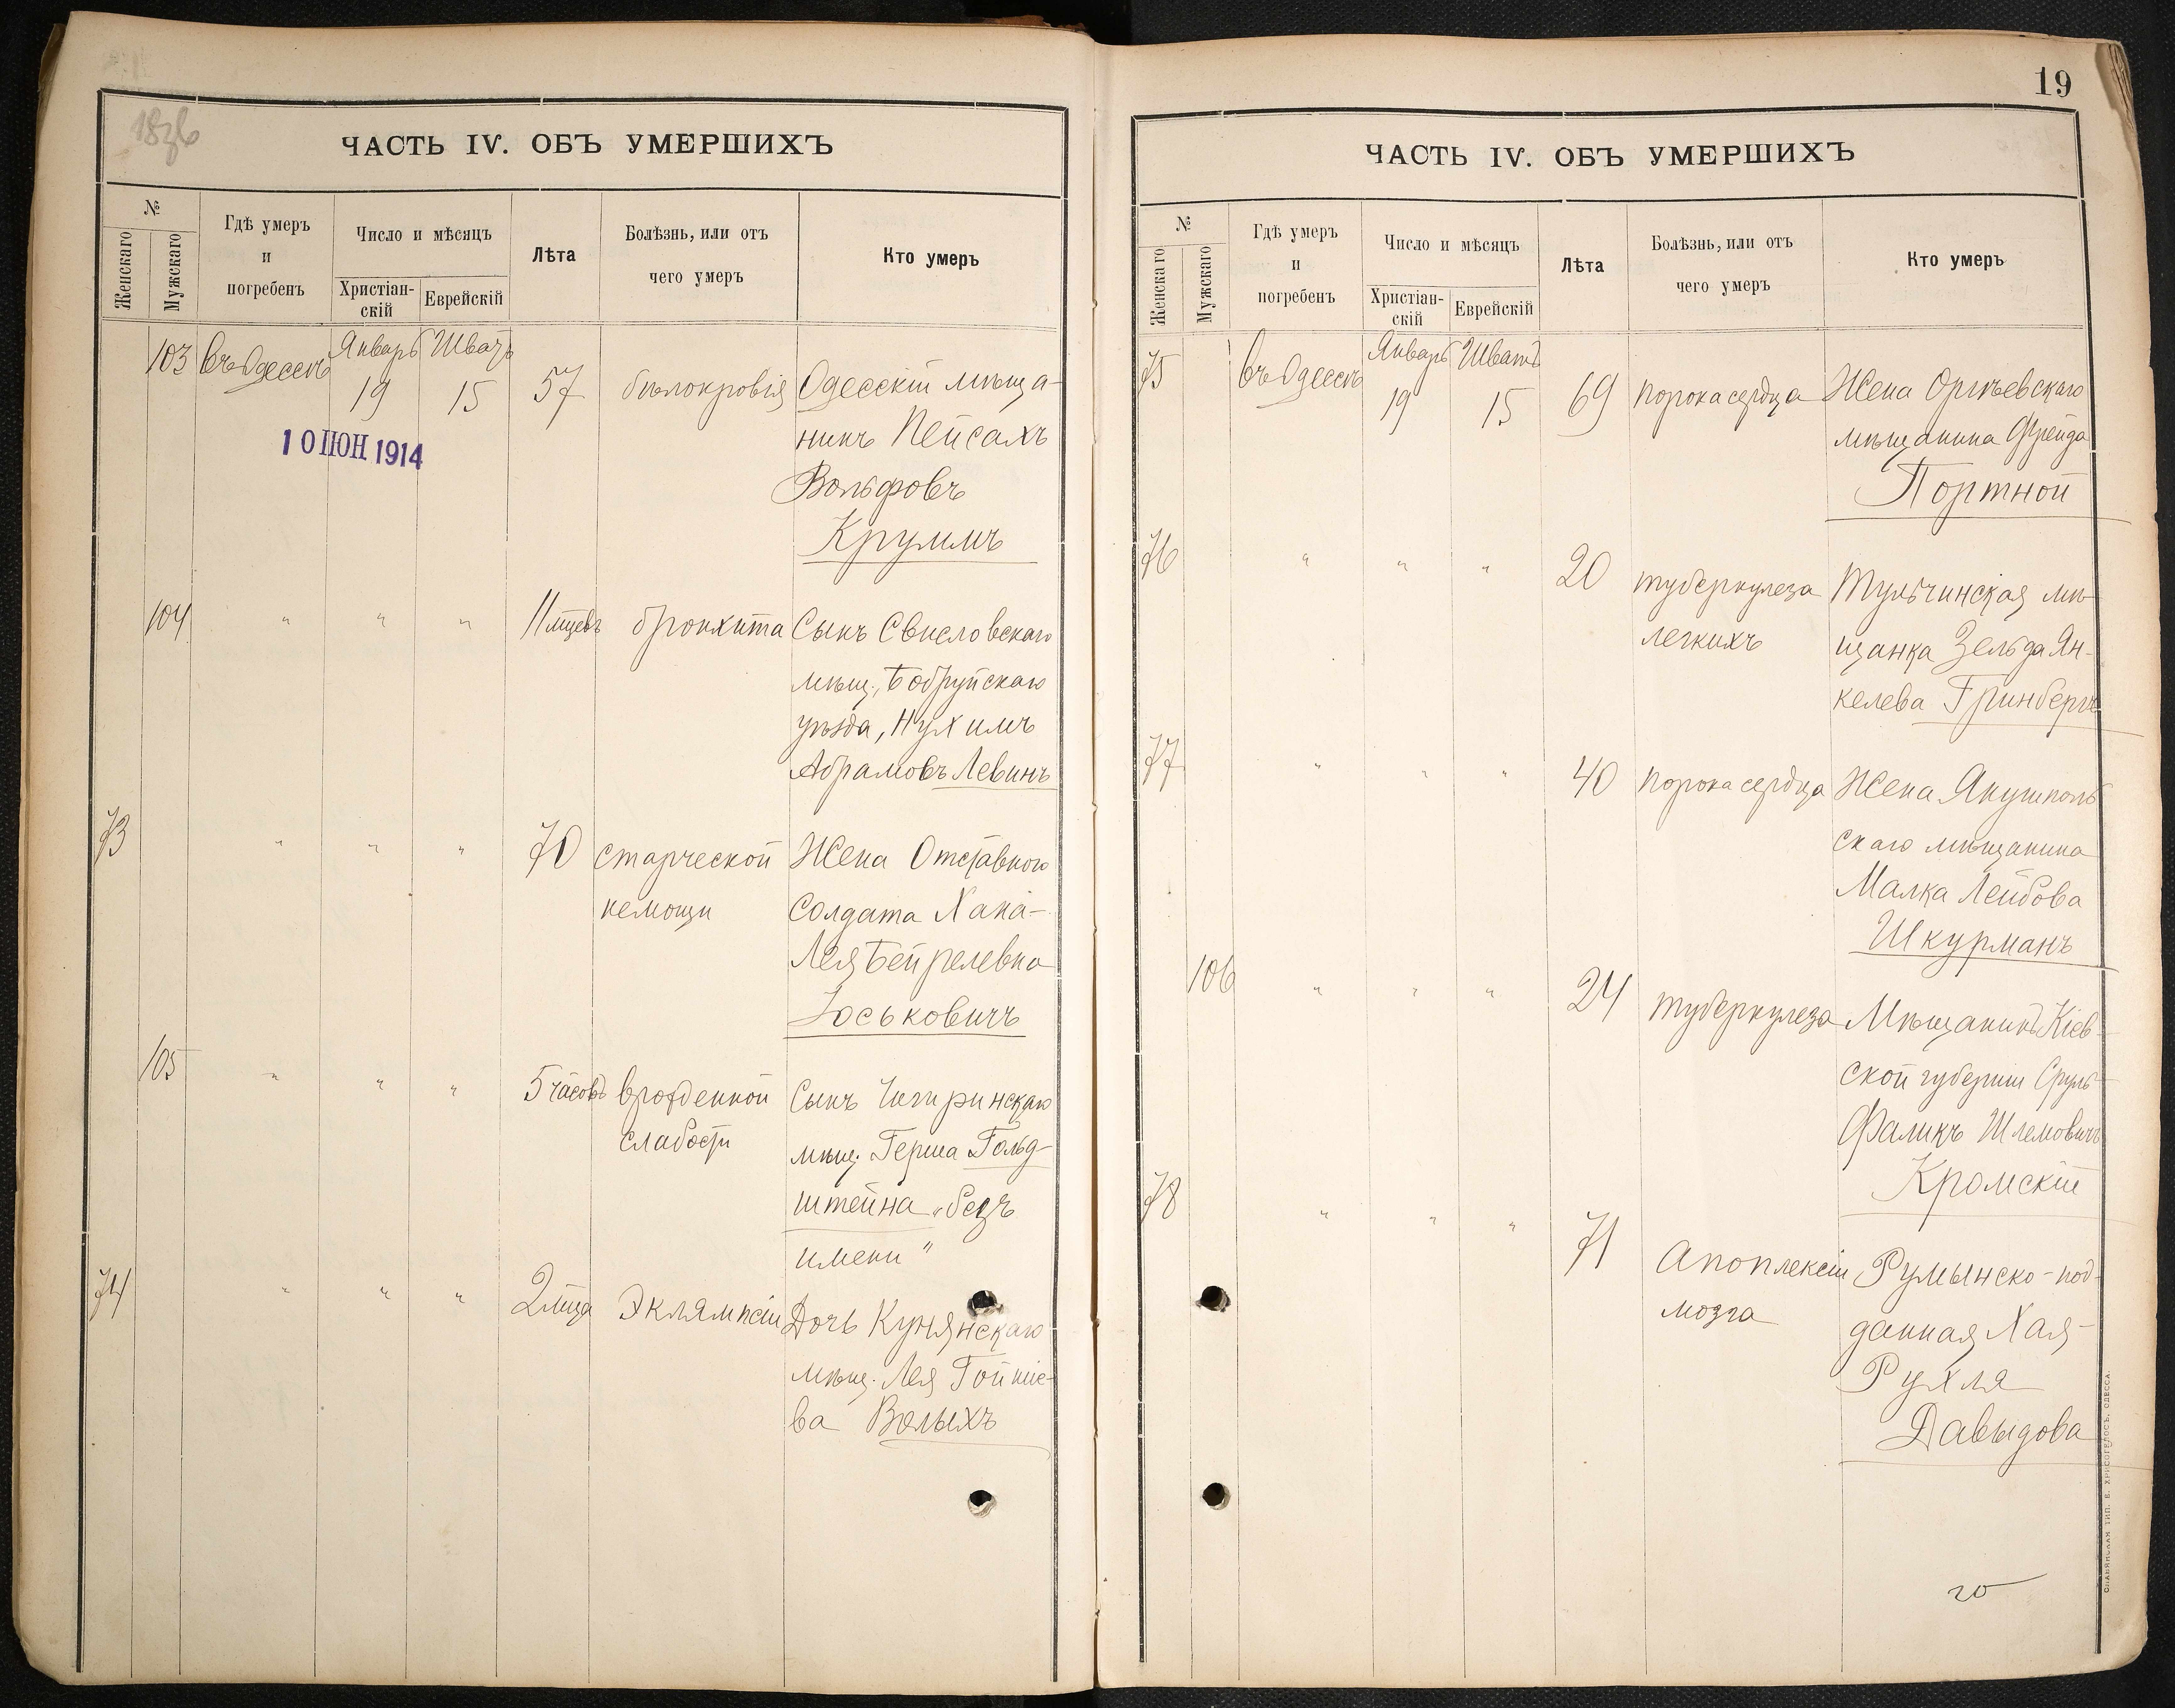 1836
ЧАСТЬ IV. ОБЪ УМЕРШИХЪ
№
Женскаго
Мужскаго
Гдѣ умеръ
и
погребенъ
Число и мѣсяцъ
Христіан-
скій
Еврейскій
Лѣта
Болѣзнь, или отъ
чего умеръ
Кто умеръ
103 въ Одессѣ Январь 19 Шватъ 15 57 бѣлокровія Одесскій мѣща-
никъ Пейсахъ
Вольфовъ
Круммъ
10 ІЮН 1914
104 " " " 11 мцевъ бронхита Сынъ Свисловскаго
мѣщ., Бобруйскаго
уѣзда, Нухимъ
Абрамовъ Левинъ
73 " " " 70 старческой Жена Отставного
немощи Солдата Хана-
Лея Бейрелевна
Юськовичъ
105 " " " 5 часовъ врожденной Сынъ Чигиринскаго
слабости мѣщ. Герша Гольд-
штейна „безъ
имени"
74 " " " 2 мца Эклямпсіи Дочь Кунянскаго
мѣщ. Лея
ва Волыхъ
19
ЧАСТЬ IV. ОБЪ УМЕРШИХЪ
№
Женскаго
Мужскаго
Гдѣ умеръ
и
погребенъ
Число и мѣсяцъ
Христіан-
скій
Еврейскій
Лѣта
Болѣзнь, или отъ
чего умеръ
Кто умеръ
75 въ Одессѣ Январь 19 Шватъ 15 69 порока сердца Жена Оргѣевскаго
мѣщанина Фрейда
Портной
76 " " " 20 туберкулеза Тульчинская мѣ-
легкихъ щанка Зельда Ян-
келева Гринбергъ
77 " " " 40 порока сердца Жена Янушполь
скаго мѣщанина
Малка Лейбова
Шкурманъ
106 " " " 24 туберкулеза Мѣщанинъ Кіев-
ской губерніи Сруль-
Фаликъ Шлемовичъ
Кромскій
78 " " " 71 Апоплексіи Румынско-под-
мозга данная Хая-
Рухля
Давыдова
СЛАВЯНСКАЯ ТИП. Е. ХРИСОГЕЛОСЪ, ОДЕССА.